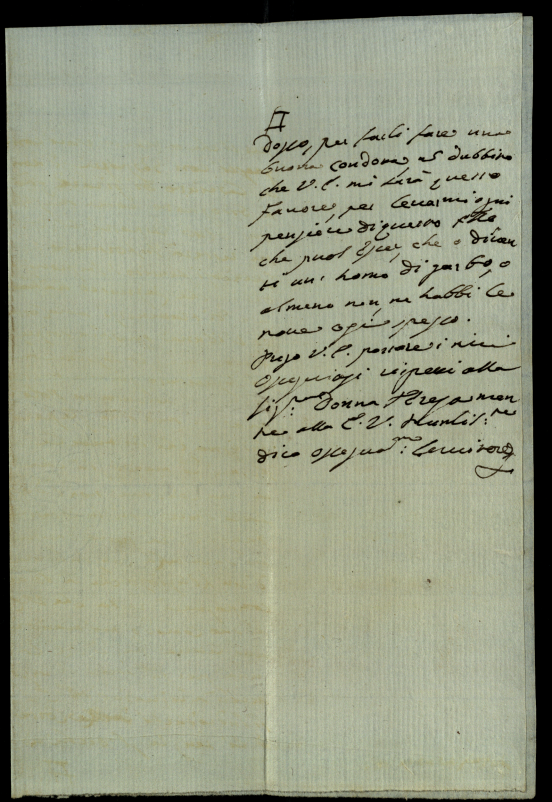 dosso, per farli fare una
buona condona, ne dubbito
che V. E. mi farà questo
favore, per levarmi ogni
pensiere di questo
che puol esser, che o diuen
ti un' homo di garbo, o
almeno non, ne habbi le
noue ogni spesso.
Prego V. E. portare i miei
ossequiosi rispetti alla
Sig.ra Donna Teresa men
tre alla E. V. humilis.te
dico osseq.mo: Seruitore